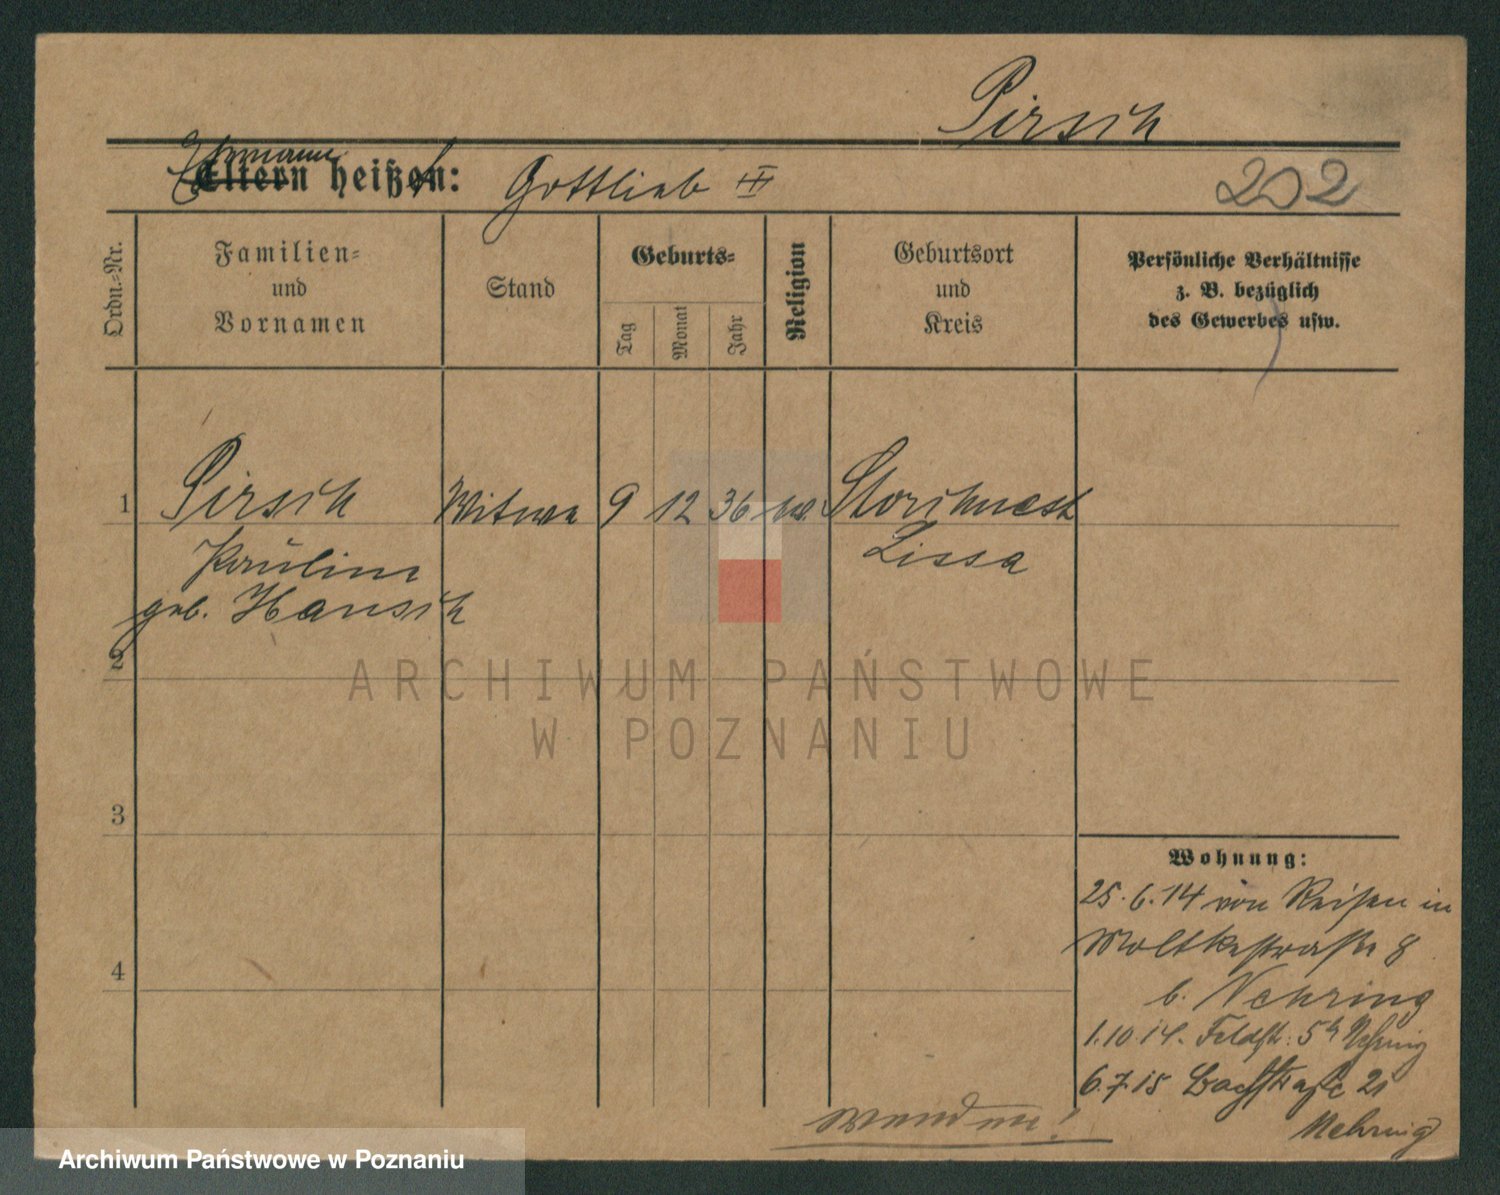 Pirsch
Ehemann
Eltern heißen: Gottlieb III
202
Ordn.-Nr.
Familien- und Vornamen
Stand
Geburts-
Tag
Monat
Jahr
Religion
Geburtsort und Kreis
Persönliche Verhältnisse
z. B. bezüglich
des Gewerbes usw.
1 Pirsch Witwe 9 12 36 ev. Storchnest
Pauline Lissa
geb. Hansch
2
3
4
Wohnung:
25.6.14 von Reisen in
Moltkestraße 8
b. Nehring
1.10.14. Feldstr. 5 b Nehring
6.7.15 Bachstraße 21
Nehring
ARCHIWUM PAŃSTWOWE
W POZNANIU
Archiwum Państwowe w Poznaniu